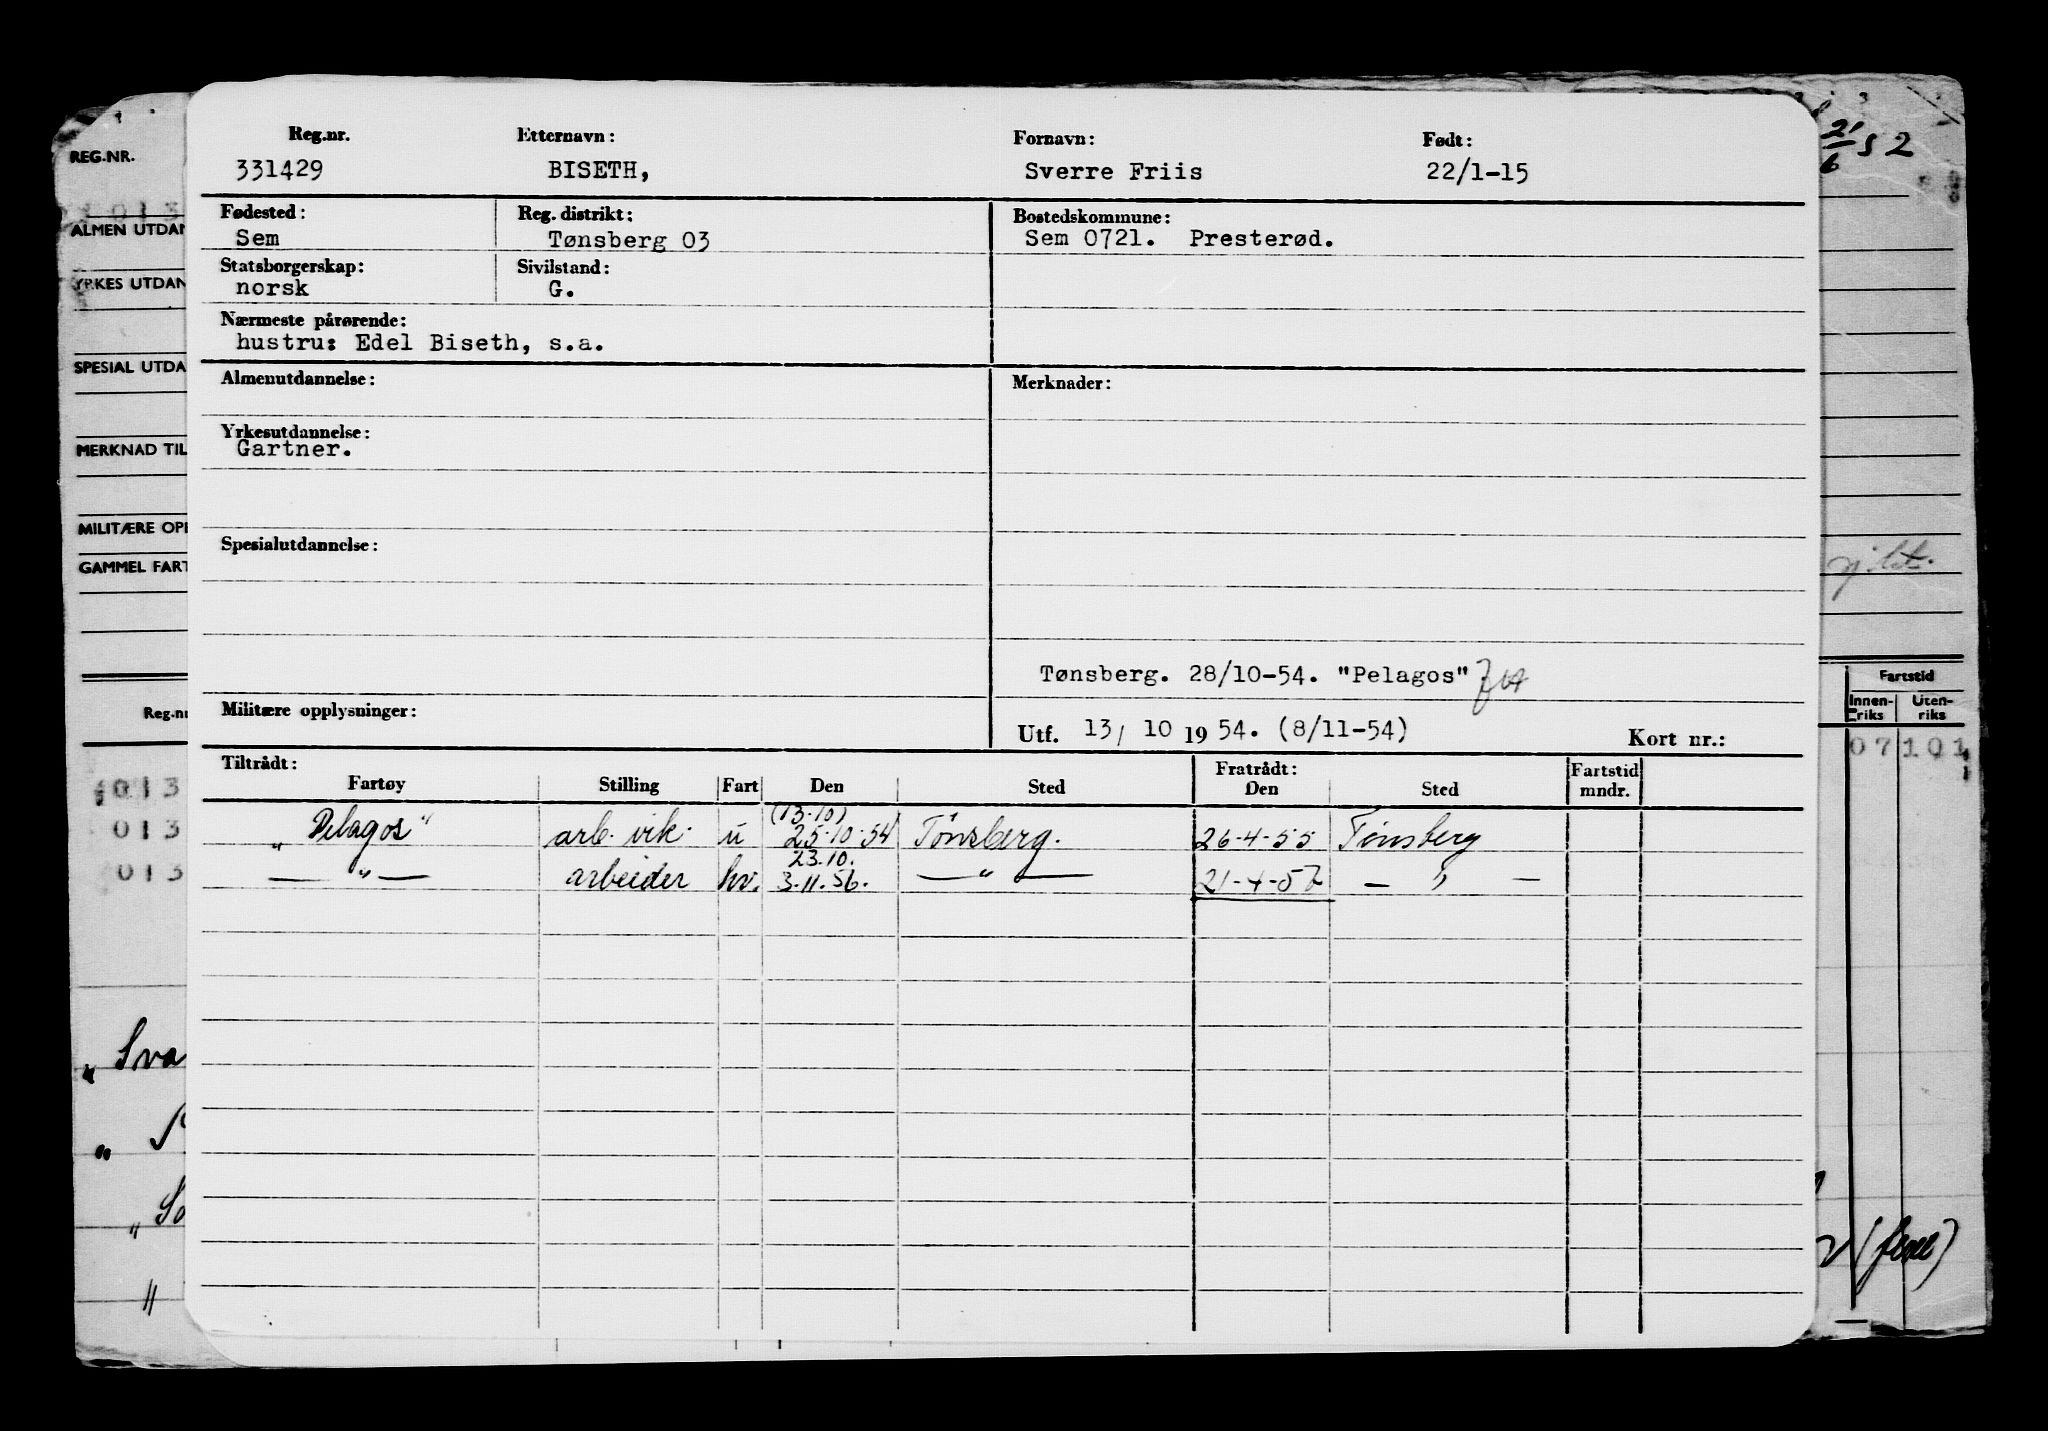 Reg.nr. Etternavn: Fornavn: Født:
331429 BISETH, Sverre Friis 22/1-15
Fødested: Reg. distrikt: Bostedskommune:
Sem Tønsberg 03 Sem 0721. Presterød.
Statsborgerskap: Sivilstand:
norsk G.
Nærmeste pårørende:
hustru: Edel Biseth, s.a.
Almenutdannelse: Merknader:
Yrkesutdannelse:
Gartner.
Spesialutdannelse:
Tønsberg. 28/10-54. "Pelagos"
Militære opplysninger: Utf. 13/ 10 1954. (8/11-54) Kort nr.:
Tiltrådt: Fratrådt: Fartstid
Fartøy Stilling Fart Den Sted Den Sted mndr.
(13.10)
"Pelagos" arb. vik. u 25.10.54 Tønsberg. 26-4-55 Tønsberg
23.10.
— " — arbeider hv. 3.11.56. — " — 21-4-57 — " —
REG.NR.
013
ALMEN UTDAN
YRKES UTDAN
SPESIAL UTDA
MERKNAD TIL
MILITÆRE OPP
GAMMEL FART
Reg.nr
013
013
013
" Sva
21/6 52
Fartstid
Innen-
riks
Uten-
riks
07 101